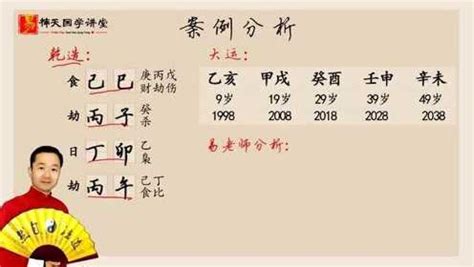 易
择天国学讲堂
案例分析
乾造：
大运：
食 己巳 庚丙戊
财劫伤
劫 丙子 癸
杀
日 丁卯 乙
枭
劫 丙午 己丁
食比
乙亥 甲戌 癸酉 壬申 辛未
9岁 19岁 29岁 39岁 49岁
1998 2008 2018 2028 2038
易老师分析：